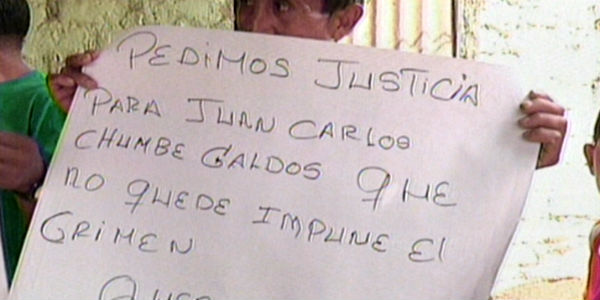 PEDIMOS JUSTICIA
PARA JUAN CARLOS
CHUMBE GALDOS QUE
NO QUEDE IMPUNE El
CRIMEN